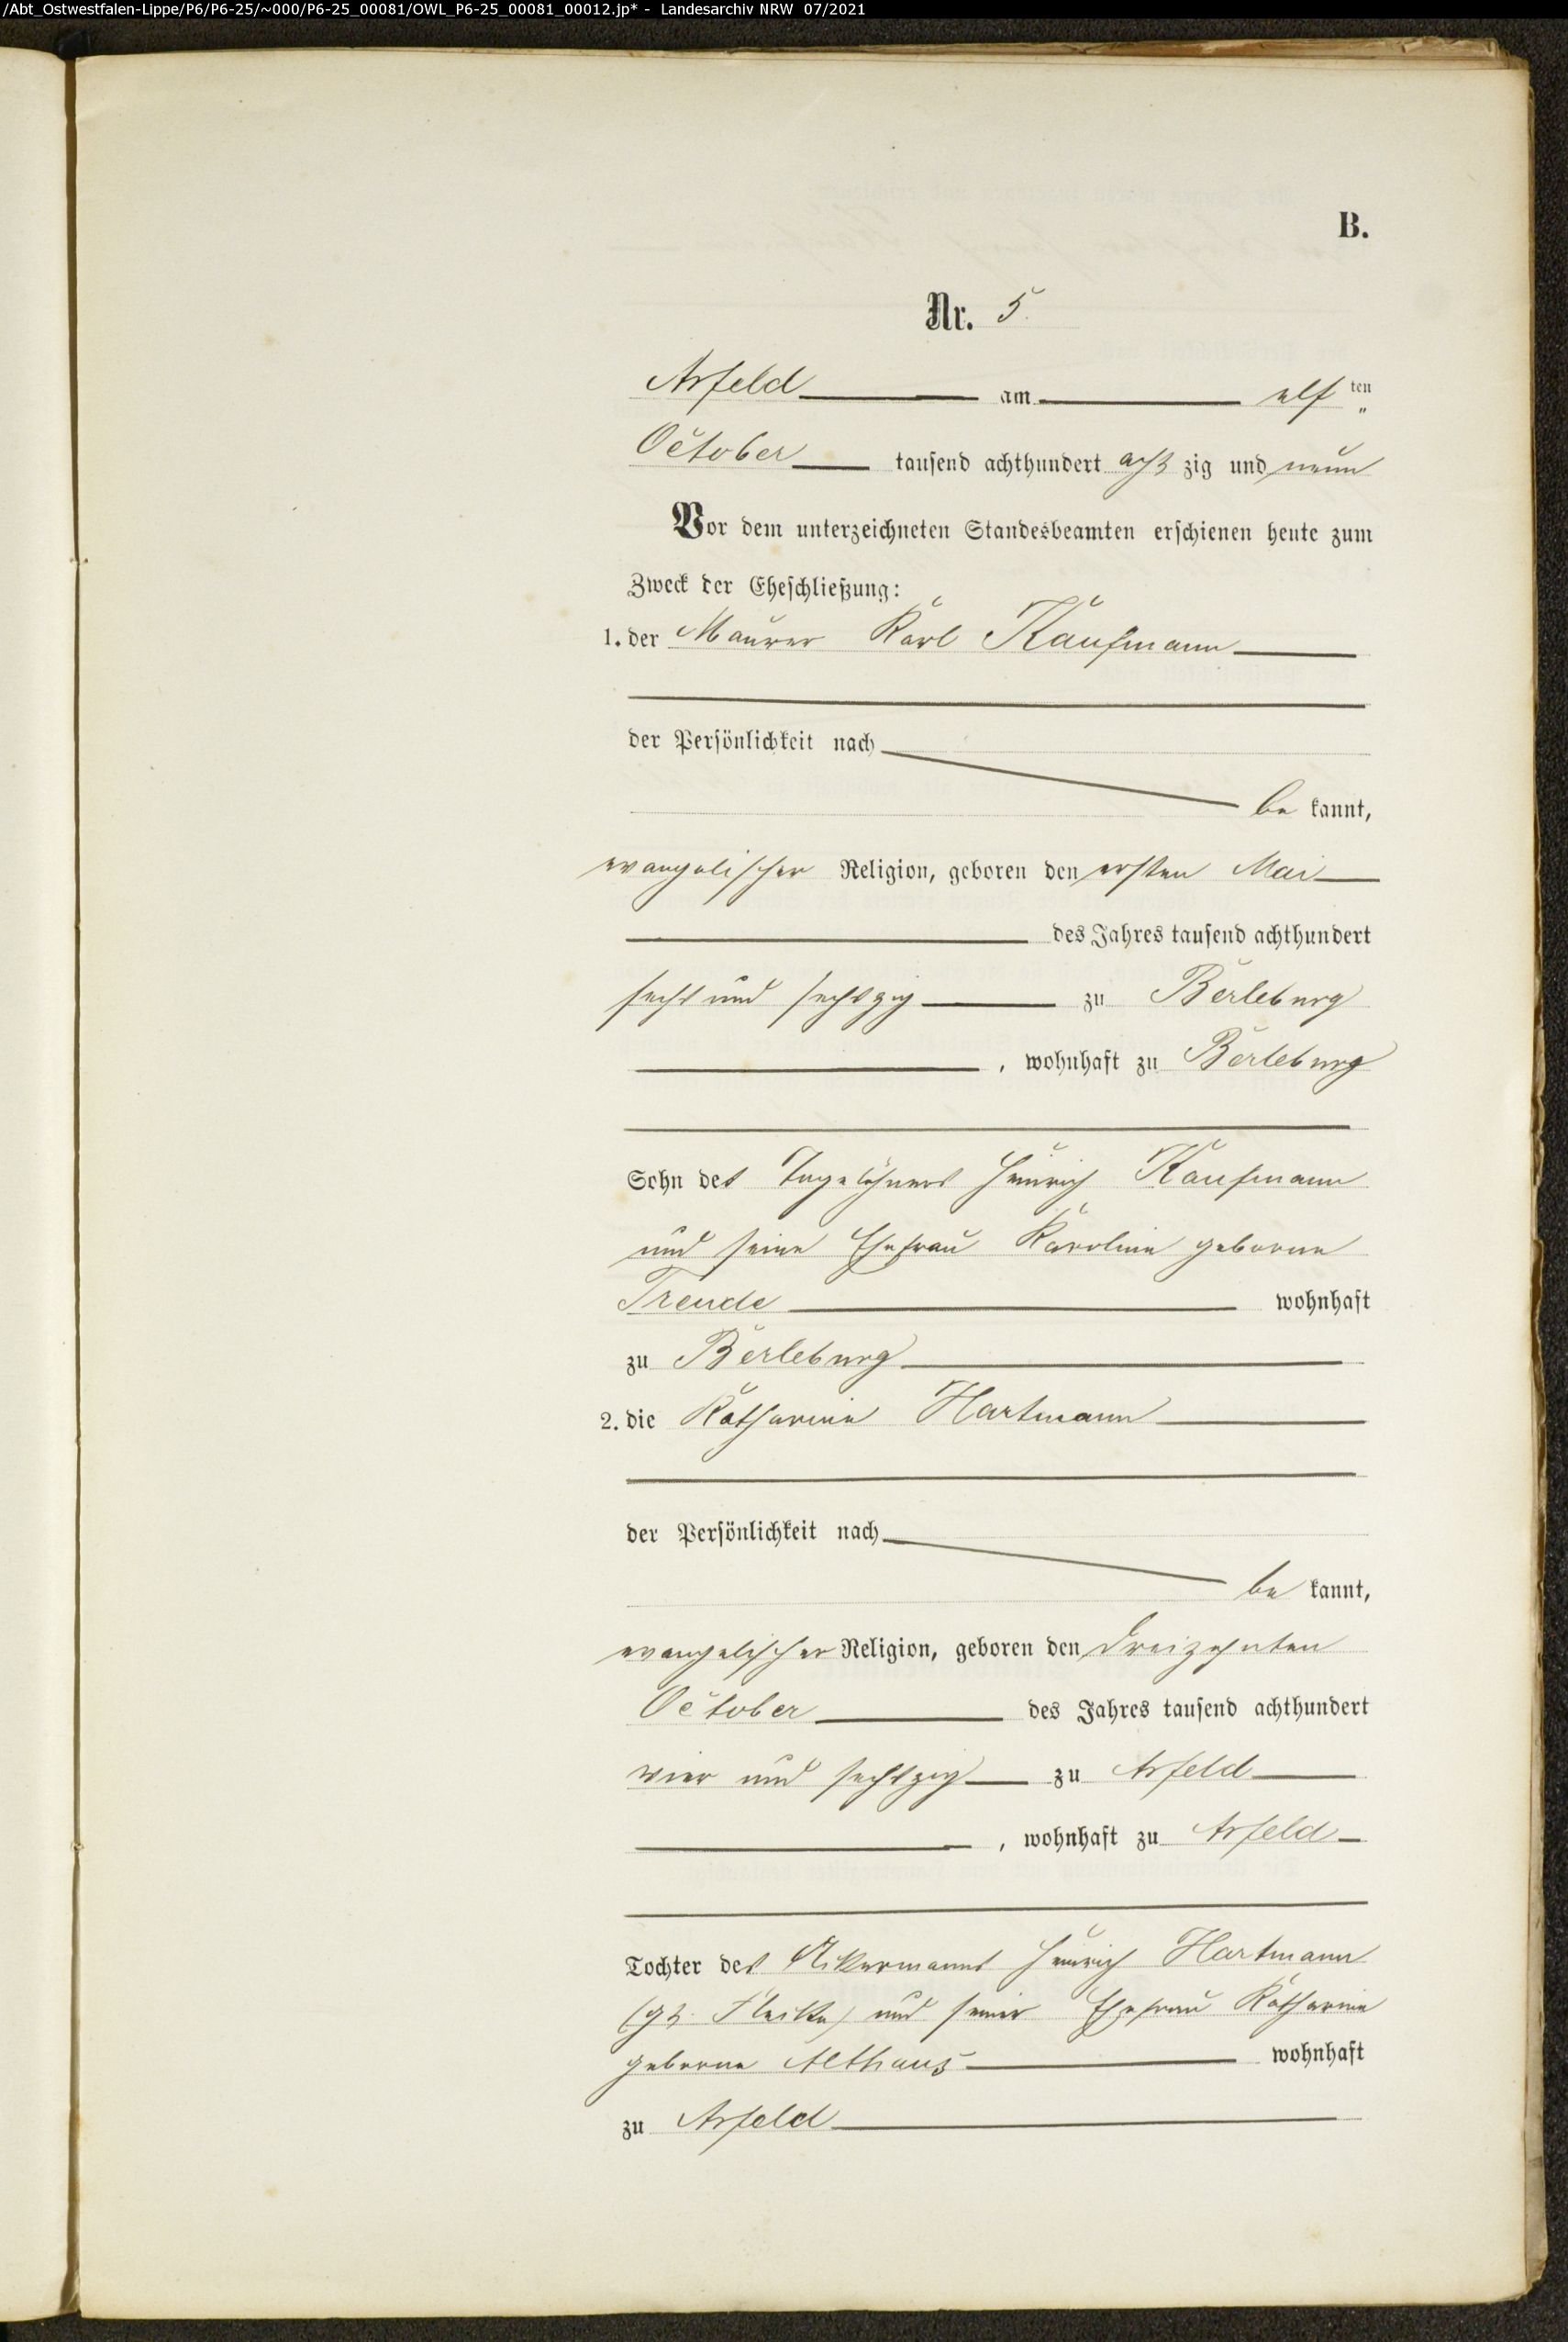 /Abt_Ostwestfalen-Lippe/P6/P6-25/~000/P6-25_00081/OWL_P6-25_00081_00012.jp* - Landesarchiv NRW 07/2021
B.
Nr. 5.
Arfeld am elf ten
October tausend achthundert acht zig und neun
Vor dem unterzeichneten Standesbeamten erschienen heute zum
Zweck der Eheschließung:
1. der Maurer Karl Kaufmann
der Persönlichkeit nach
be kannt,
evangelischer Religion, geboren den ersten Mai
des Jahres tausend achthundert
sechs und sechszig zu Berleburg
, wohnhaft zu Berleburg
Sohn des Tagelöhners Heinrich Kaufmann
und seine Ehefrau Karoline geborne
Treude wohnhaft
zu Berleburg
2. die Katharine Hartmann
der Persönlichkeit nach
be kannt,
evangelischer Religion, geboren den dreizehnten
October des Jahres tausend achthundert
vier und sechszig zu Arfeld
, wohnhaft zu Arfeld
Tochter des Ackermanns Heinrich Hartmann
und seiner Ehefrau Katharine
geborne Althaus wohnhaft
zu Arfeld